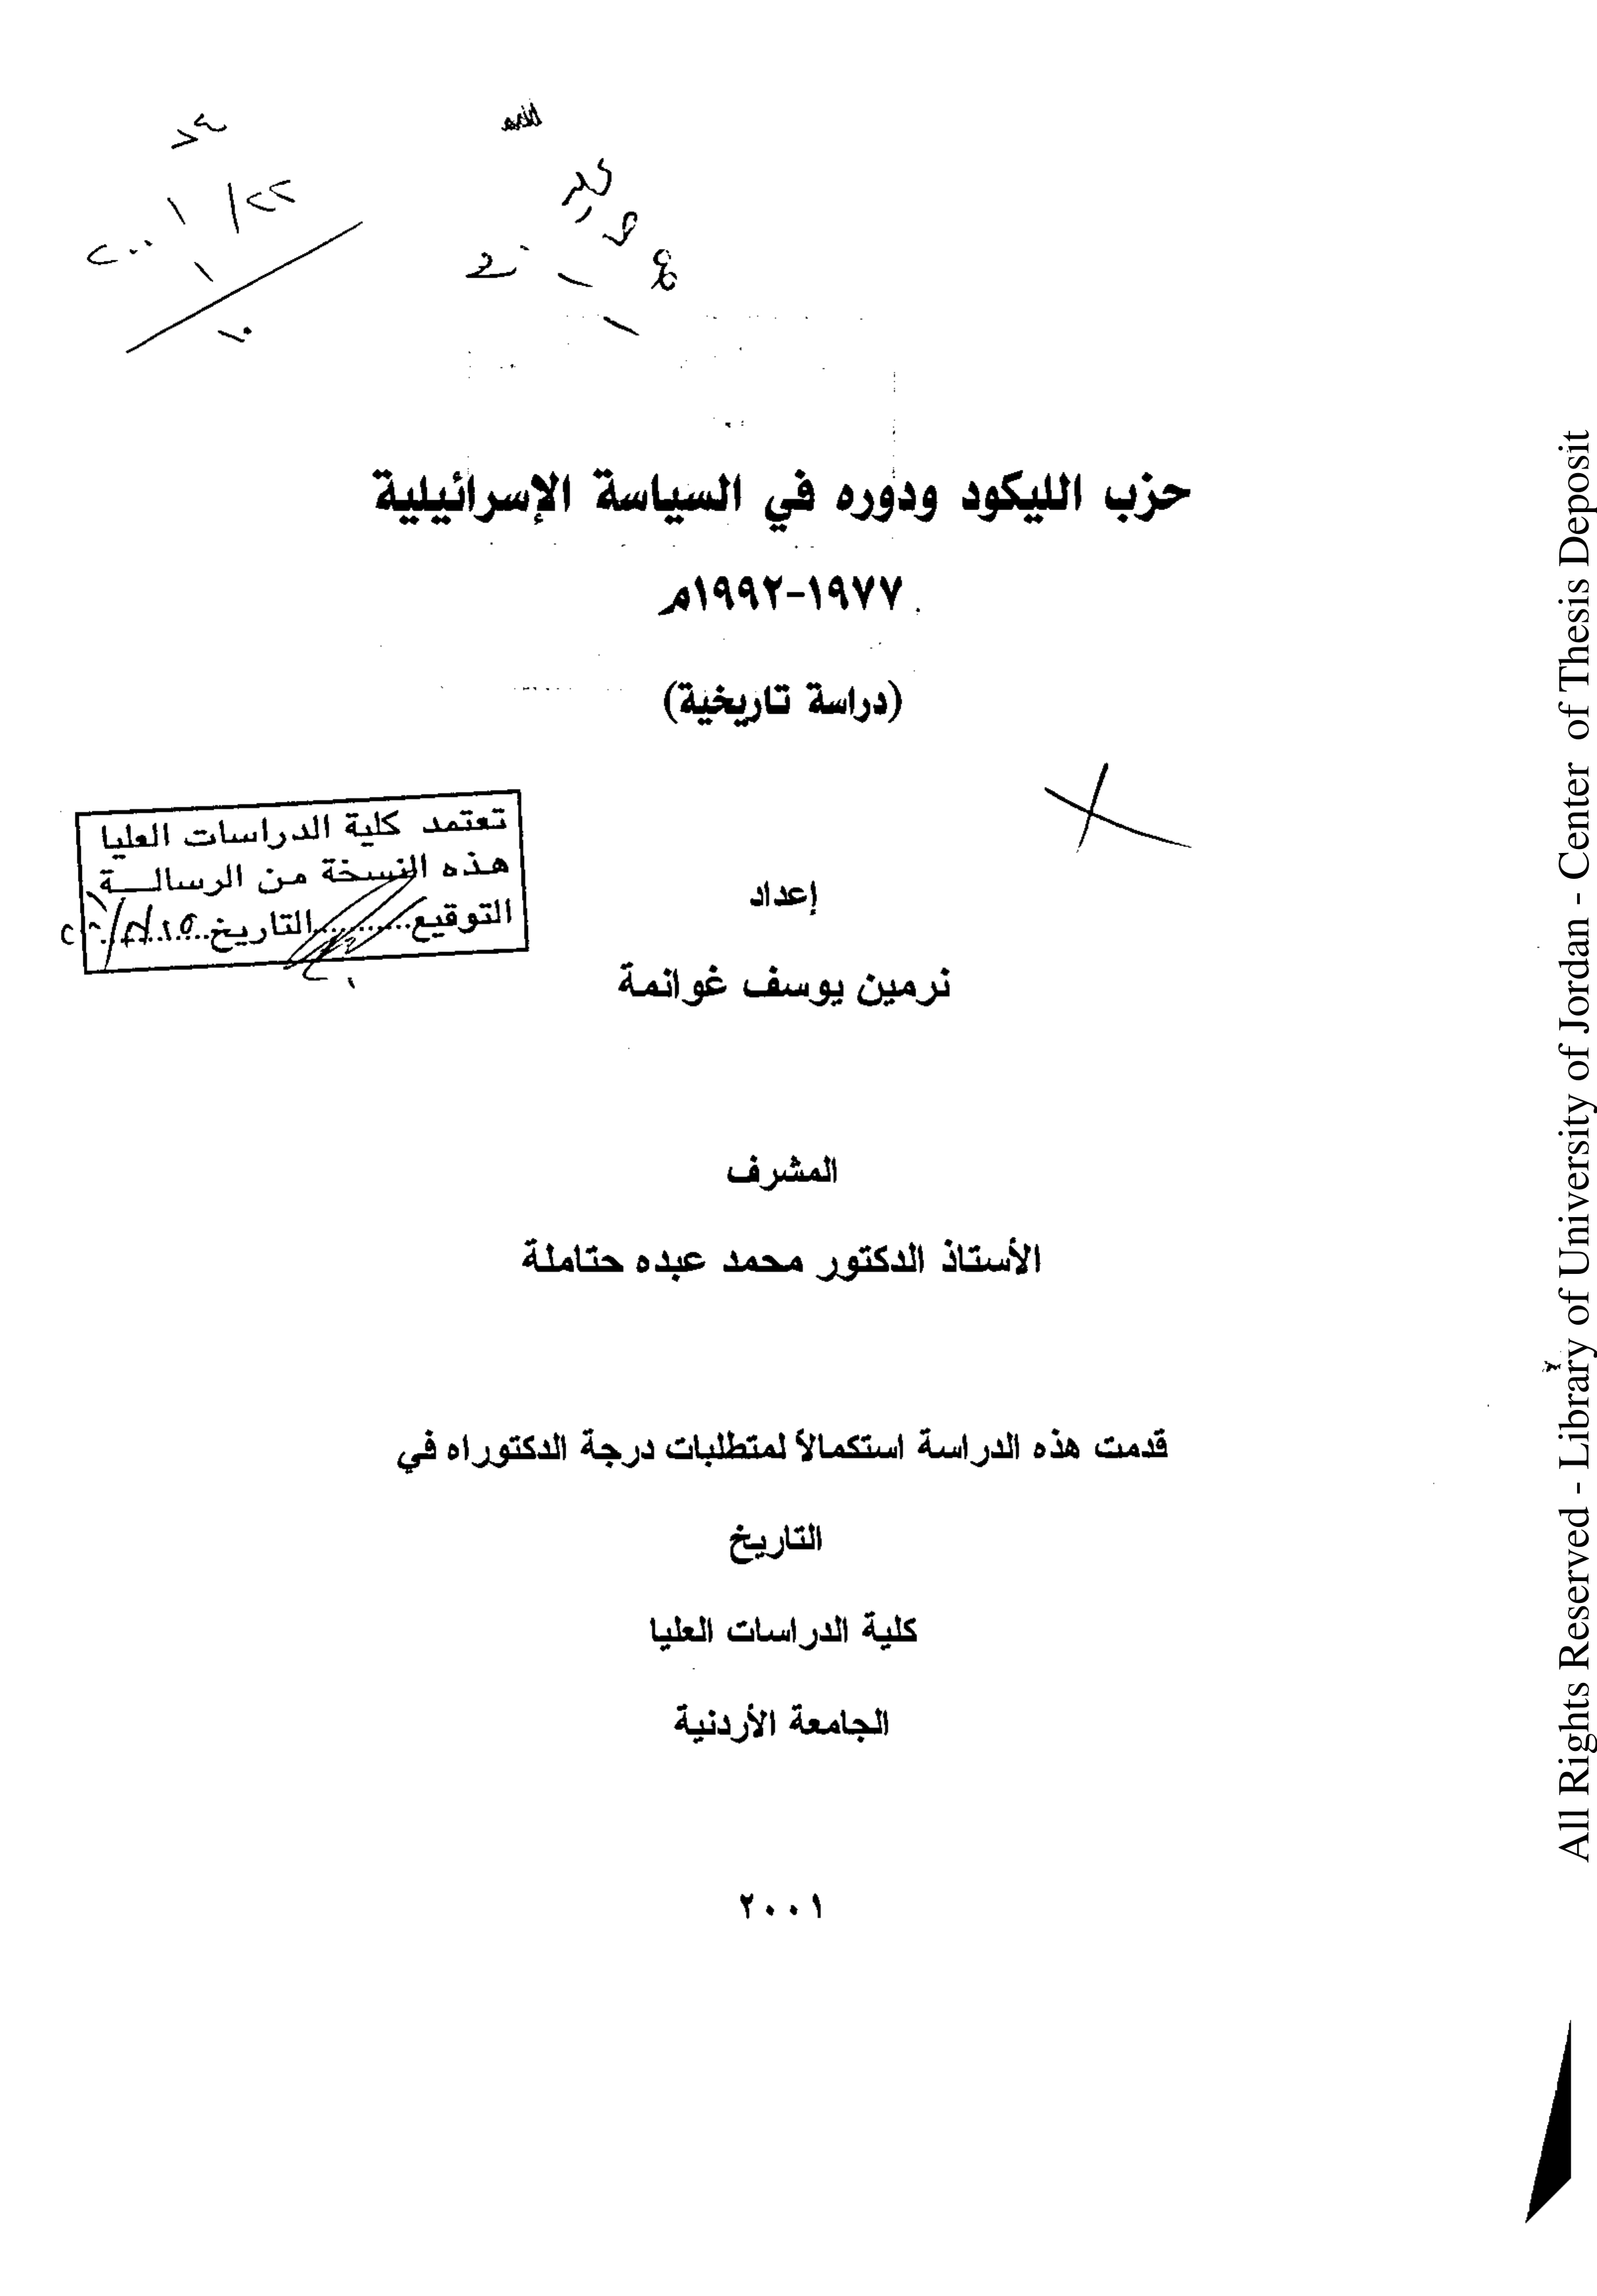 حزب الليكود ودوره في السياسة الإسرائيلية
١٩٧٧-١٩٩٢م
(دراسة تاريخية)
تعتمد كلية الدراسات العليا
هذه النسخة من الرسالة
التوقيع...........التاريخ...........
إعداد
نرمين يوسف غوانمة
المشرف
الأستاذ الدكتور محمد عبده حتاملة
قدمت هذه الدراسة استكمالاً لمتطلبات درجة الدكتوراه في
التاريخ
كلية الدراسات العليا
الجامعة الأردنية
٢٠٠١
All Rights Reserved - Library of University of Jordan - Center of Thesis Deposit